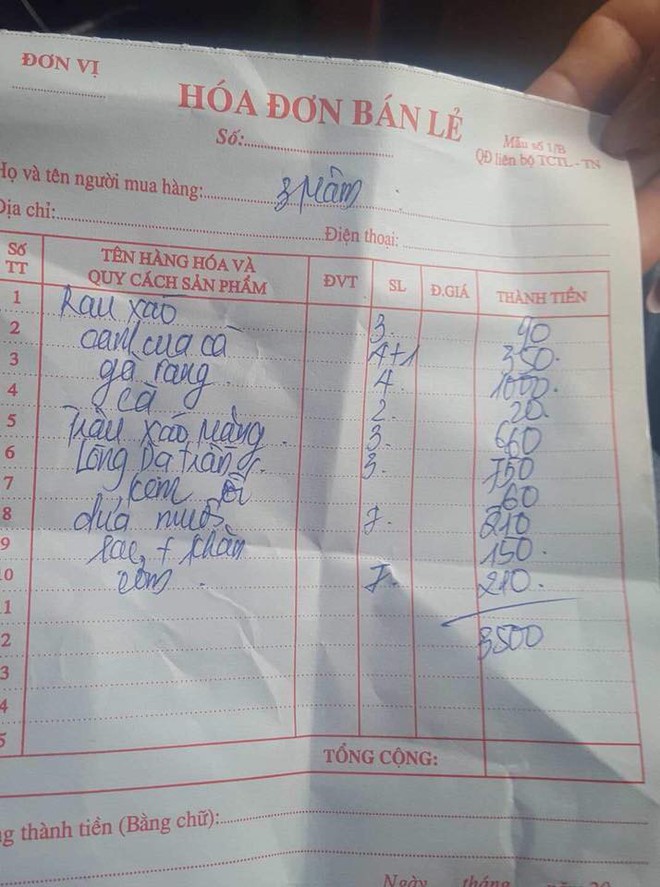 ĐƠN VỊ
HÓA ĐƠN BÁN LẺ
Số:
Mẫu số 1/B
QĐ liên bộ TCTL - TN
Họ và tên người mua hàng: 3 mâm
Địa chỉ:
Điện thoại:
Số TT TÊN HÀNG HÓA VÀ QUY CÁCH SẢN PHẨM ĐVT SL Đ.GIÁ THÀNH TIỀN
1 Rau xào 3. 90
2 canh cua cà 4+1 350.
3 gà rang. 4. 1000.
4 cà 2. 20.
5 Trâu xào măng. 3. 660
6 Lòng Dạ tràng. 3. 750
7 kem 60
8 dứa nước 7. 210
9 + khăn 150.
0 cơm. 7. 210.
1
2 3500
3
4
5
TỔNG CỘNG:
g thành tiền (Bằng chữ):
Ngày tháng năm 20